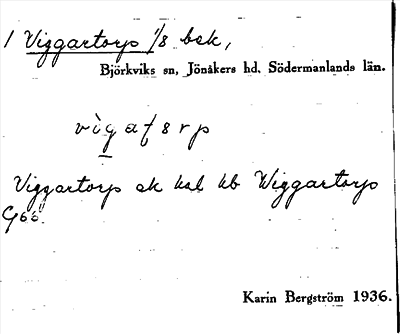 1 Viggartorp 1/8 bsk,
Björkviks sn, Jönåkers hd. Södermanlands län.
Viggartorp ek kal hb Wiggartorp
G66
Karin Bergström 1936.